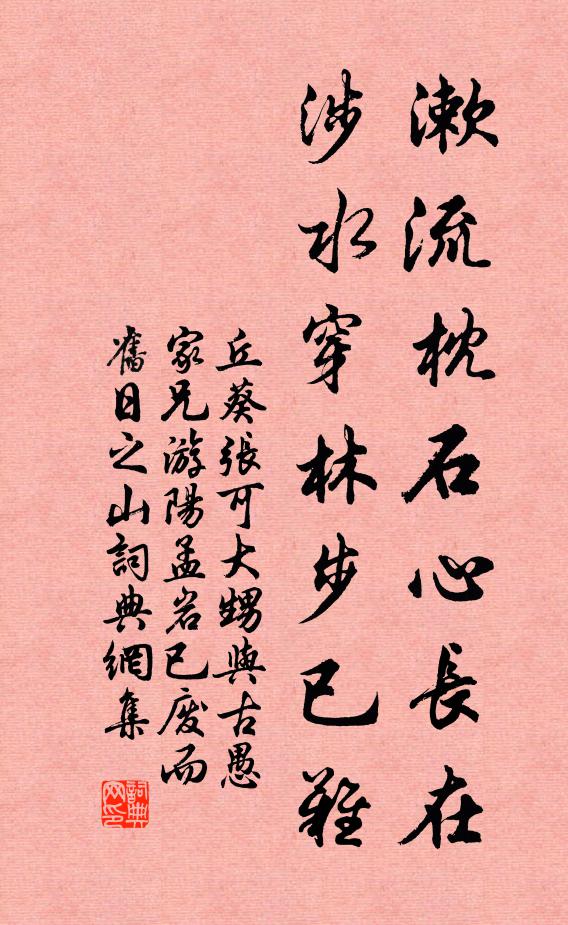 漱流枕石心長在
涉水穿林步已難
丘葵張可大甥與古愚
家兄游陽孟岩已廢而
舊日之山詞典網集
詞典
网印